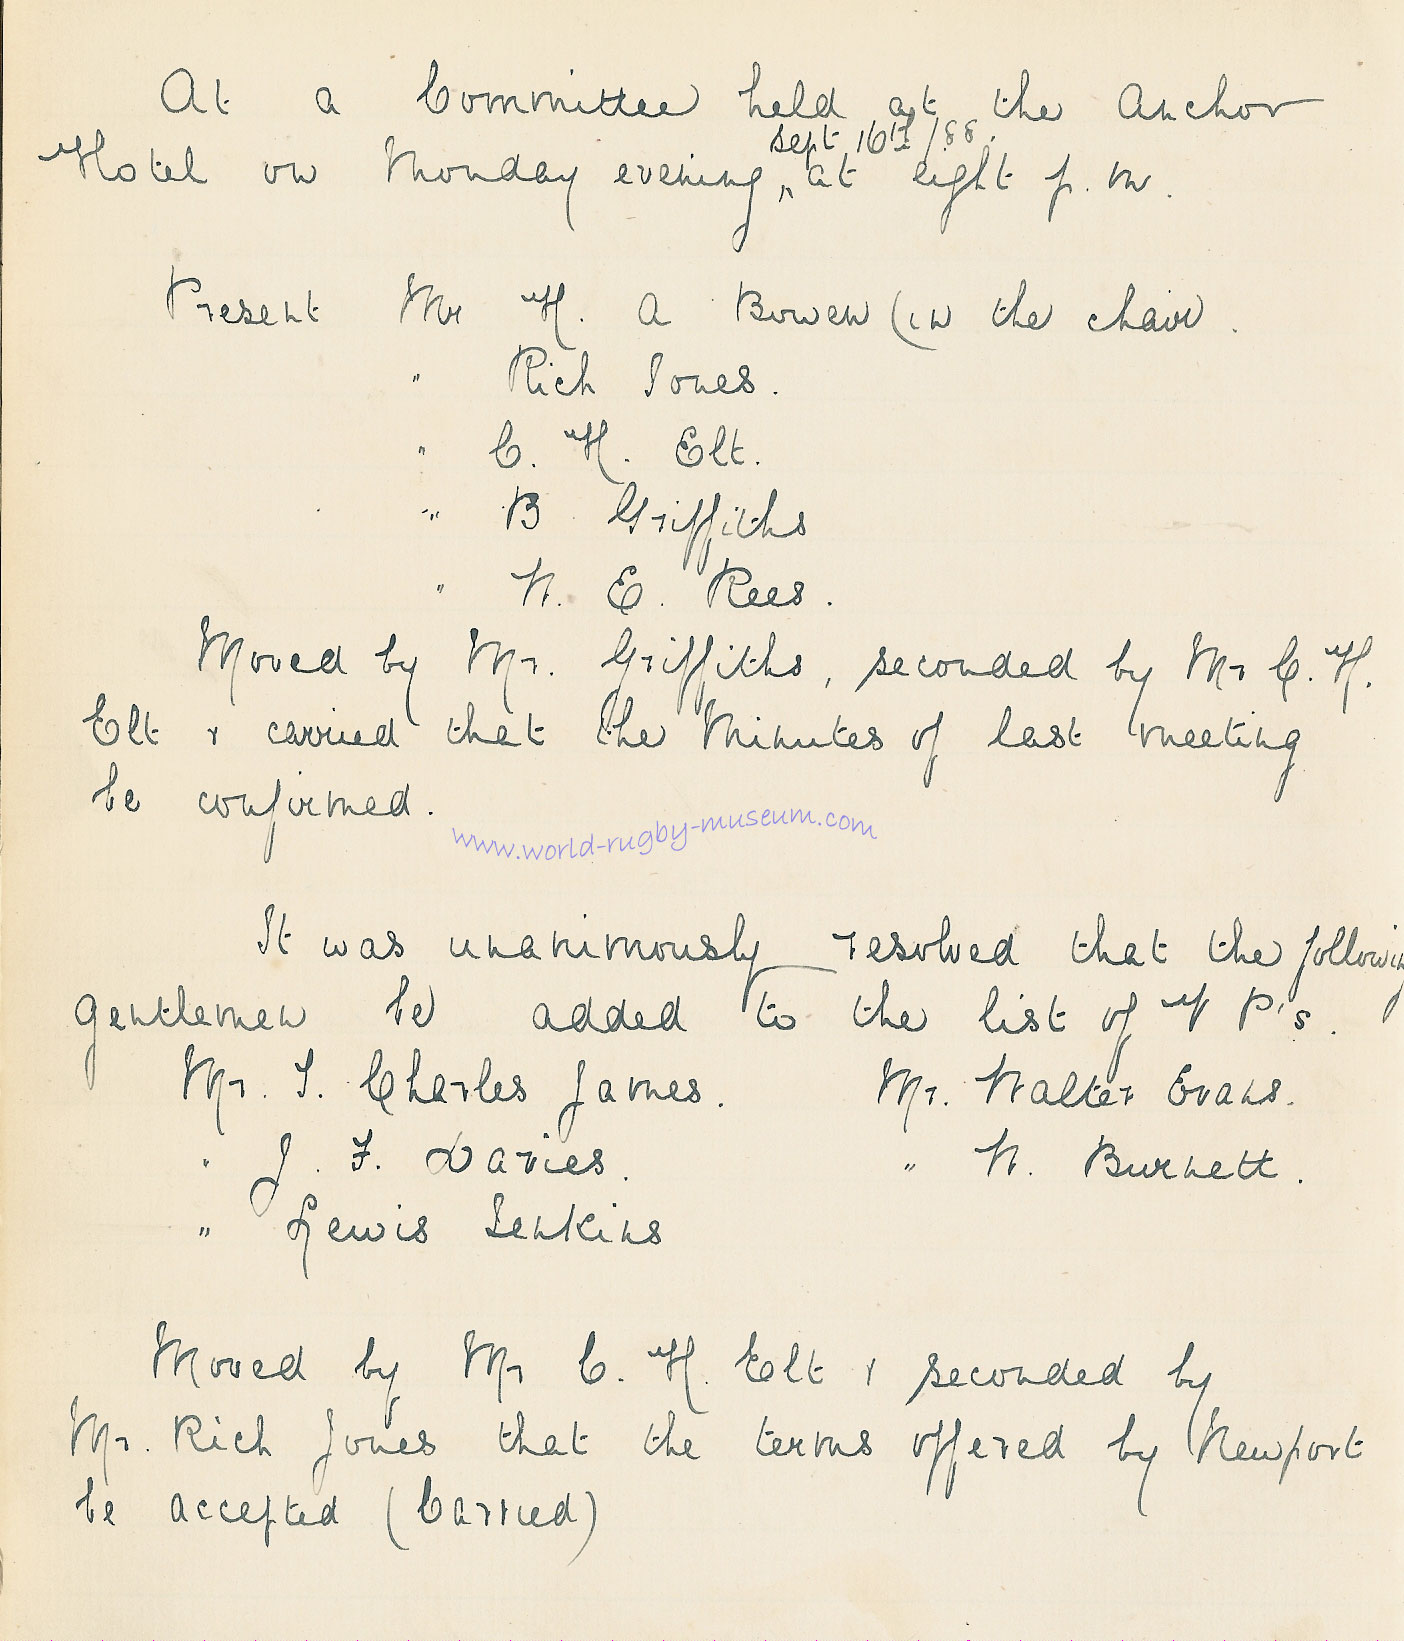 At a Committee held at the Anchor
Sept 16th /88.
Hotel on Monday evening, at eight p.m.
Present Mr H. A Bowen (in the chair.
" Rich Jones.
" C. H. Elt.
" B Griffiths
" W. E. Rees.
Moved by Mr. Griffiths, seconded by Mr C. H.
Elt & carried that the Minutes of last meeting
be confirmed.
www.world-rugby-museum.com
It was unanimously resolved that the following
gentlemen be added to the list of V P's.
Mr. T. Charles James. Mr. Walter Evans.
" J. F. Davies. " W. Burnett.
" Lewis Jenkins
Moved by Mr C. H. Elt & seconded by
Mr. Rich Jones that the terms offered by Newport
be accepted (Carried)